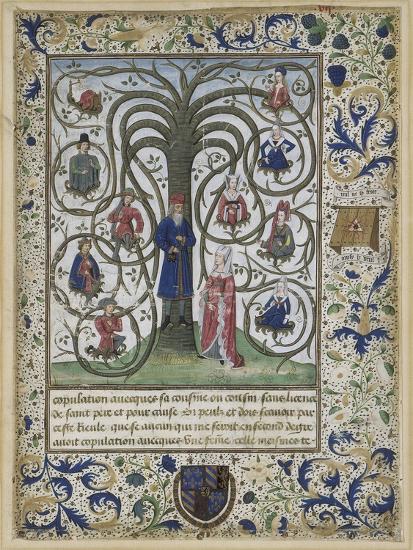 copulation avecques sa cousine ou cousin sans licence
de saint pere et pour cause Et peulx et dois scavoir par
ceste Rieule que se aucun qui me seroit en second degre
avoit copulation avecques une feme celle meismes te